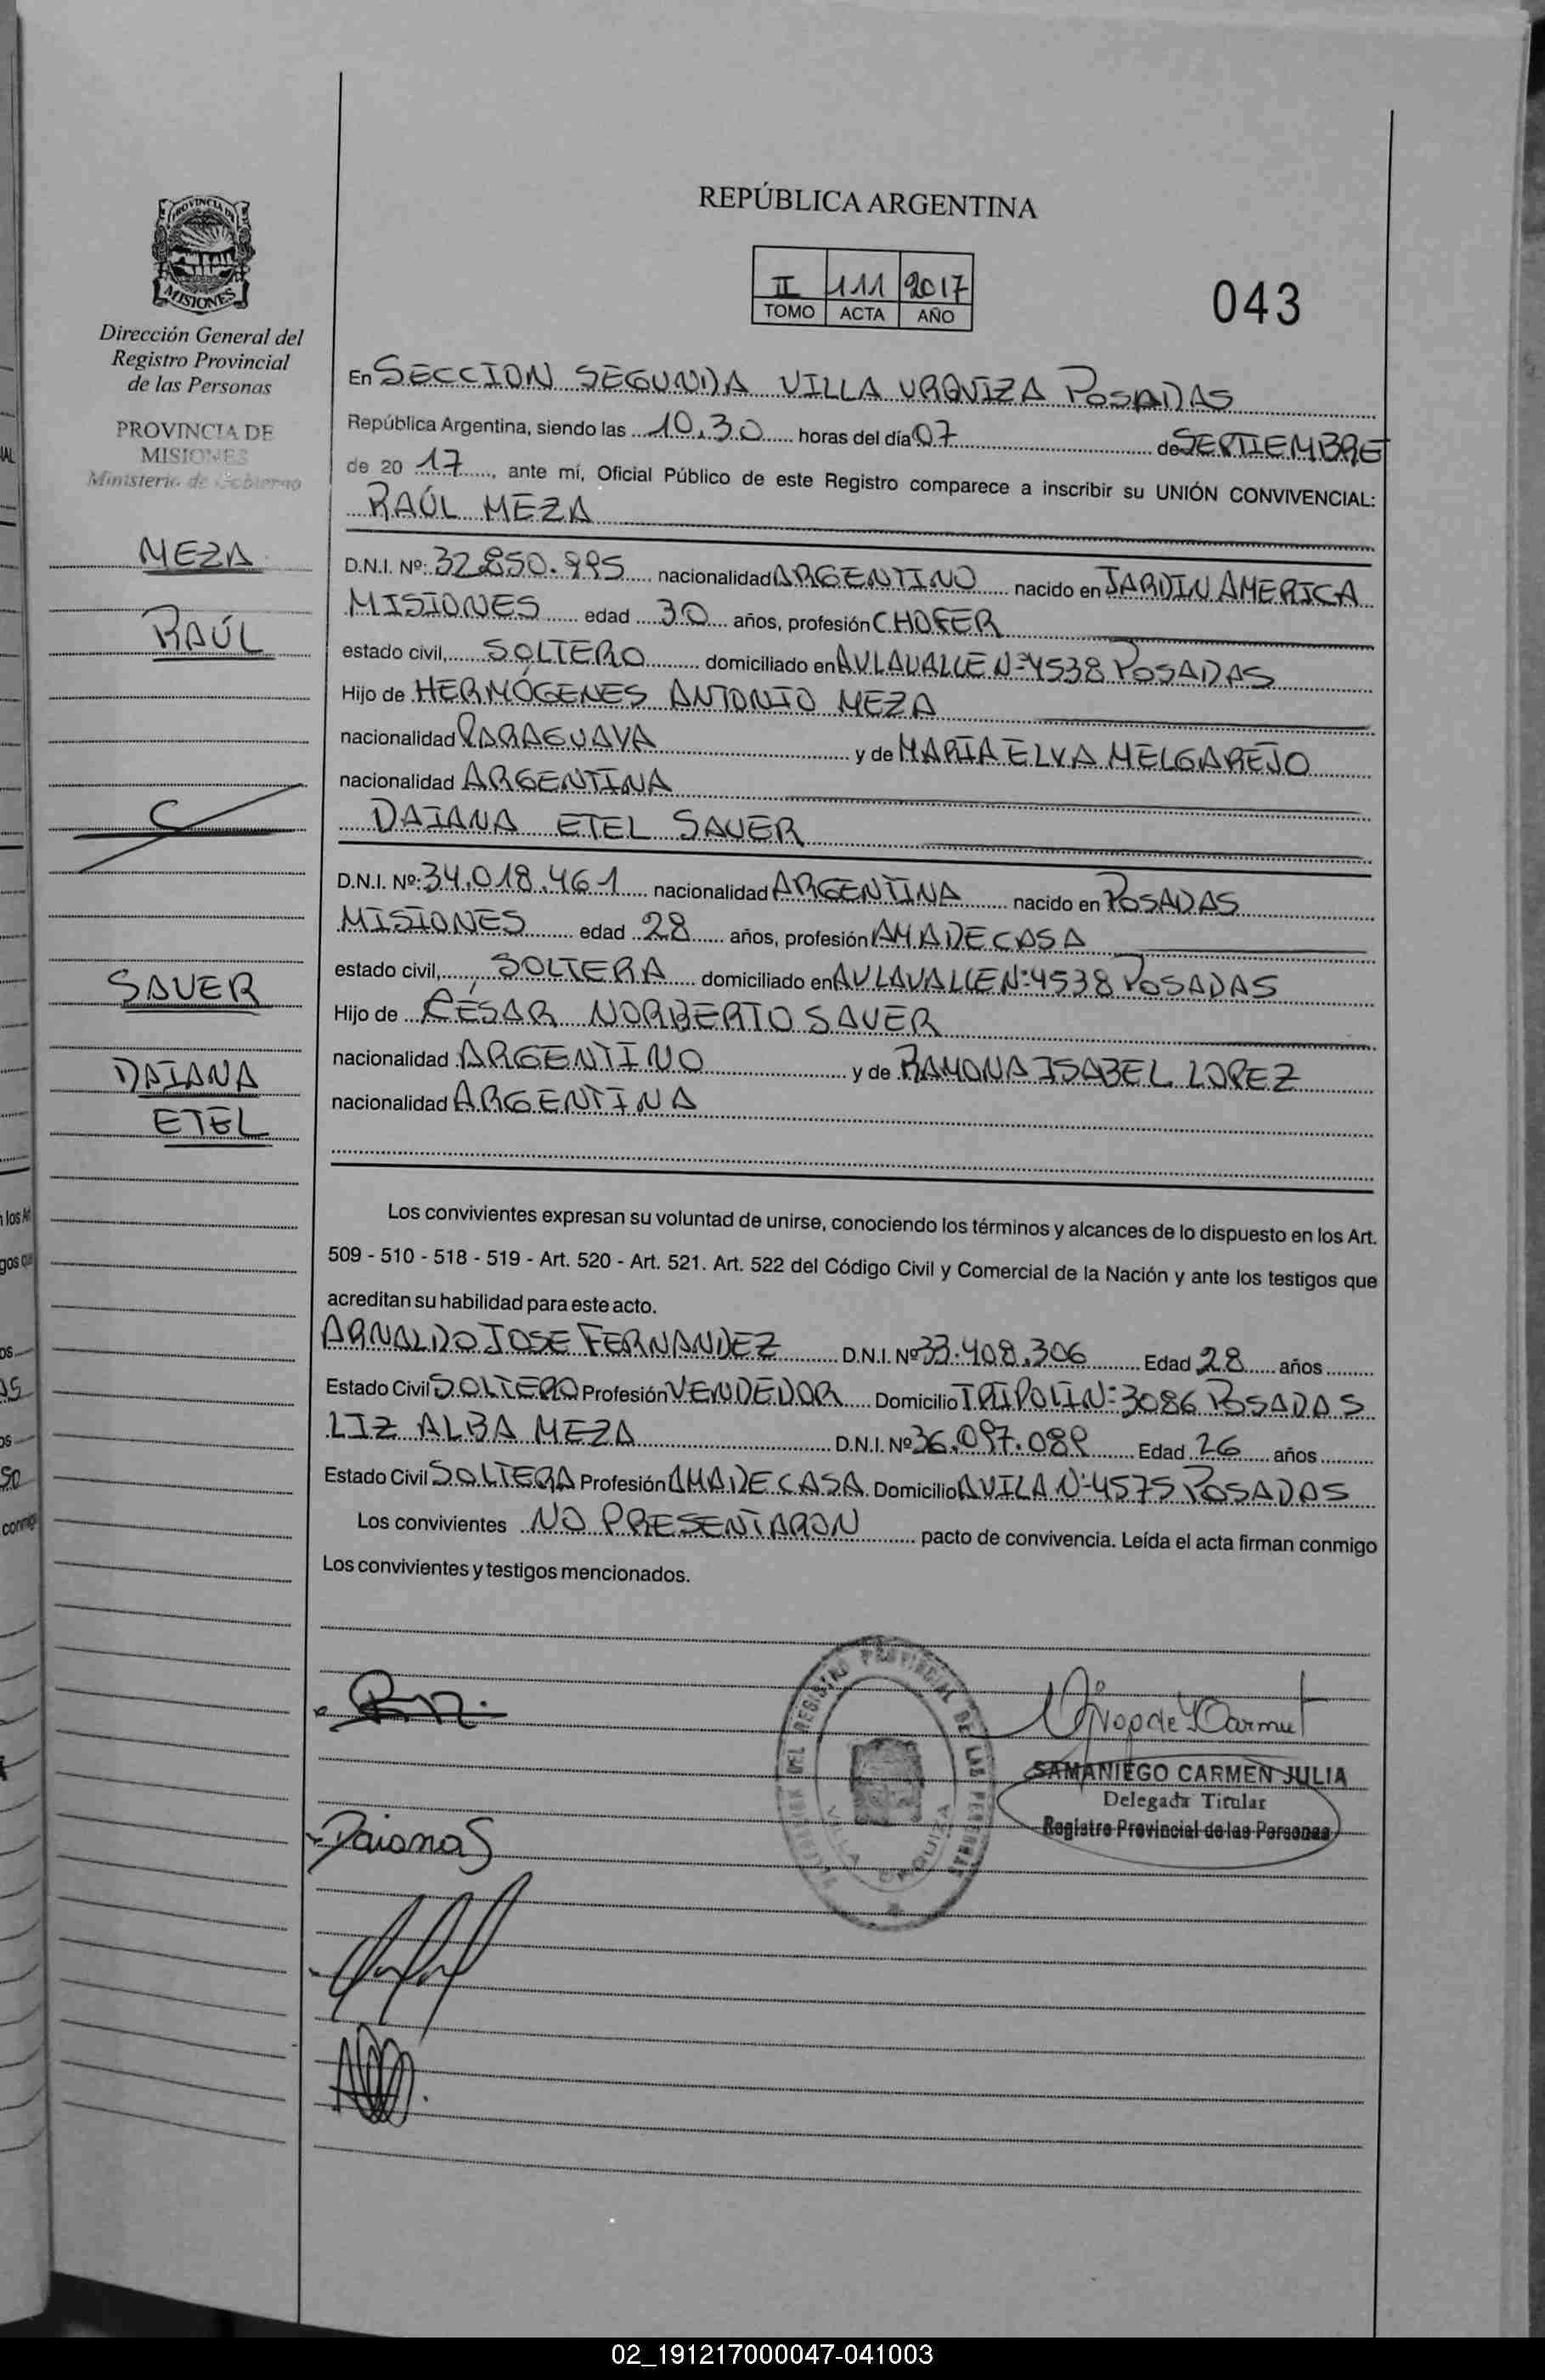 REPÚBLICA ARGENTINA
II 111 2017
TOMO ACTA AÑO
043
PROVINCIA DE
MISIONES
Dirección General del
Registro Provincial
de las Personas
PROVINCIA DE
MISIONES
Ministerio de Gobierno
MEZA
RAÚL
SAUER
DAIANA
ETEL
En SECCION SEGUNDA VILLA URQUIZA POSADAS
República Argentina, siendo las 10,30 horas del día 07 de SEPTIEMBRE
de 20 17, ante mí, Oficial Público de este Registro comparece a inscribir su UNIÓN CONVIVENCIAL:
RAÚL MEZA
D.N.I. Nº: 32.850.995 nacionalidad ARGENTINO nacido en JARDIN AMERICA
MISIONES edad 30 años, profesión CHOFER
estado civil, SOLTERO domiciliado en AV LAVALLE N=4538 POSADAS
Hijo de HERMÓGENES ANTONIO MEZA
nacionalidad PARAGUAYA y de MARÍA ELVA MELGAREJO
nacionalidad ARGENTINA
DAIANA ETEL SAUER
D.N.I. Nº: 34.018.461 nacionalidad ARGENTINA nacido en POSADAS
MISIONES edad 28 años, profesión AMA DE CASA
estado civil, SOLTERA domiciliado en AV LAVALLE N=4538 POSADAS
Hijo de CÉSAR NORBERTO SAUER
nacionalidad ARGENTINO y de RAMONA ISABEL LOPEZ
nacionalidad ARGENTINA
Los convivientes expresan su voluntad de unirse, conociendo los términos y alcances de lo dispuesto en los Art.
509 - 510 - 518 - 519 - Art. 520 - Art. 521. Art. 522 del Código Civil y Comercial de la Nación y ante los testigos que
acreditan su habilidad para este acto.
ARNALDO JOSE FERNANDEZ D.N.I. Nº 33.408.306 Edad 28 años
Estado Civil SOLTERO Profesión VENDEDOR Domicilio TRIPOLI N=3086 POSADAS
LIZ ALBA MEZA D.N.I. Nº 36.097.089 Edad 26 años
Estado Civil SOLTERA Profesión AMA DE CASA Domicilio AVILA N=4575 POSADAS
Los convivientes NO PRESENTARON pacto de convivencia. Leída el acta firman conmigo
Los convivientes y testigos mencionados.
DEL REGISTRO PROVINCIAL DE LAS PERSONAS
VILLA URQUIZA
SAMANIEGO CARMEN JULIA
Delegada Titular
Registro Provincial de las Personas
Daiana S
02_191217000047-041003